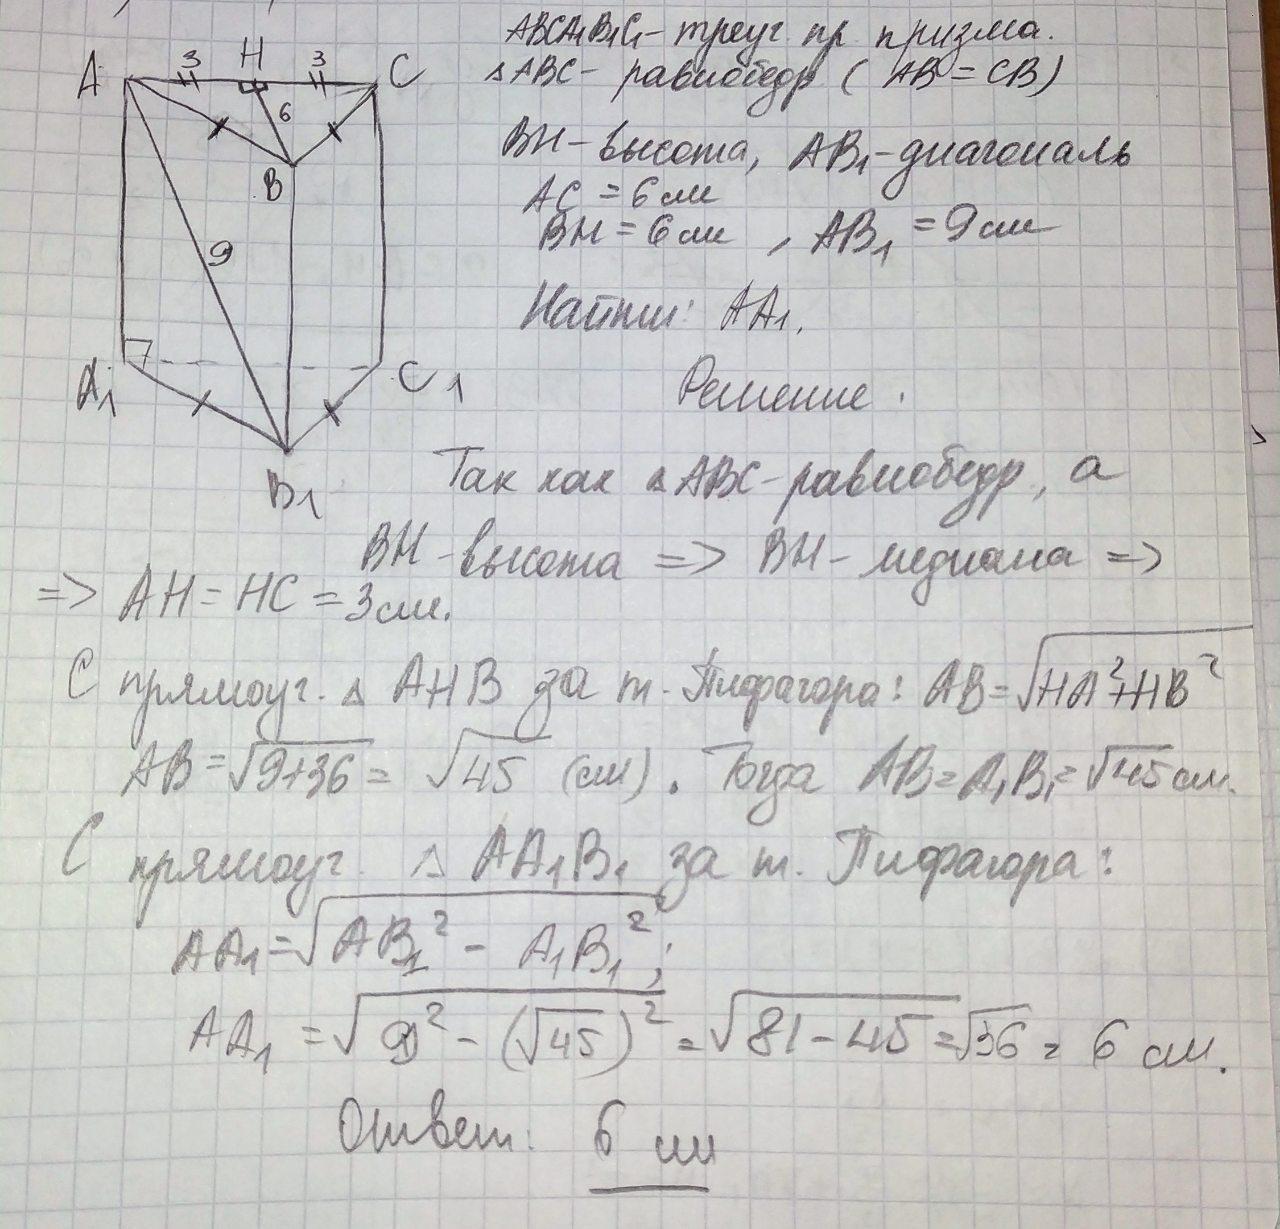 ABCA₁B₁C₁ - треуг. пр. призма.
△ABC - равнобедр ( AB = CB)
BH - высота, AB₁ - диагональ
AC = 6 см
BH = 6 см , AB₁ = 9 см
Найти: AA₁.
Решение.
A 3 H 3 C
6
B
9
A₁ C₁
B₁
Так как △ABC - равнобедр, а
BH - высота => BH - медиана =>
=> AH = HC = 3 см.
С прямоуг. △ AHB за т. Пифагора: AB = √HA² + HB²
AB = √9+36 = √45 (см). Тогда AB = A₁B₁ = √45 см.
С прямоуг. △ AA₁B₁ за т. Пифагора:
AA₁ = √AB₁² - A₁B₁² ;
AA₁ = √9² - (√45)² = √81 - 45 = √36 = 6 см.
Ответ: 6 см